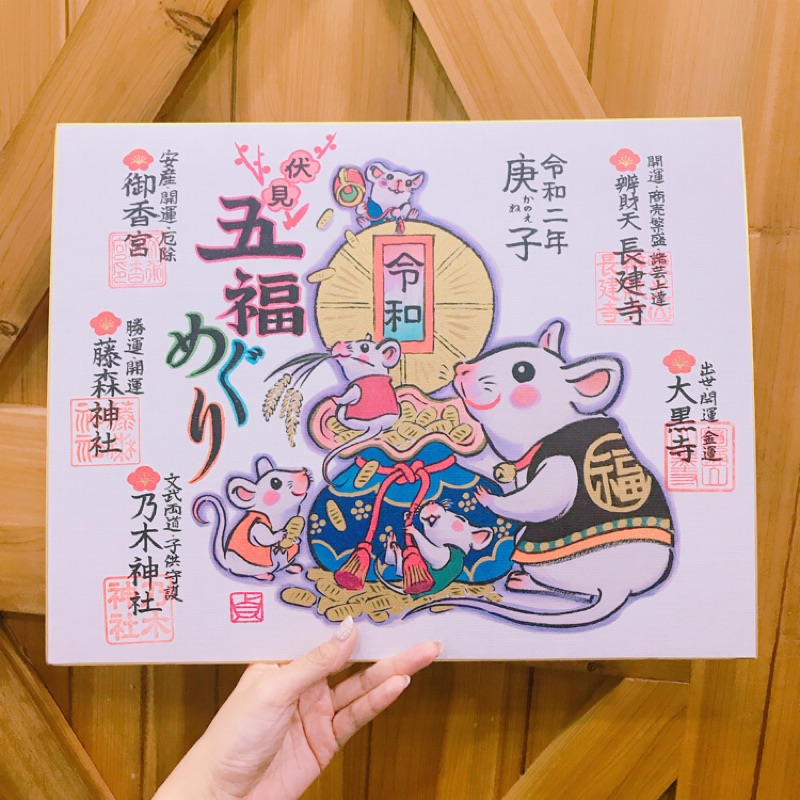 開運・商売繁盛・諸芸上達
辨財天 長建寺
出世開運・金運
大黒寺
令和二年
庚子
かのえ
ね
令和
福
伏見
五福
めぐり
安産・開運・厄除
御香宮
勝運・開運
藤森神社
藤森
神社
文武両道・子供守護
乃木神社
乃木
神社
長建寺